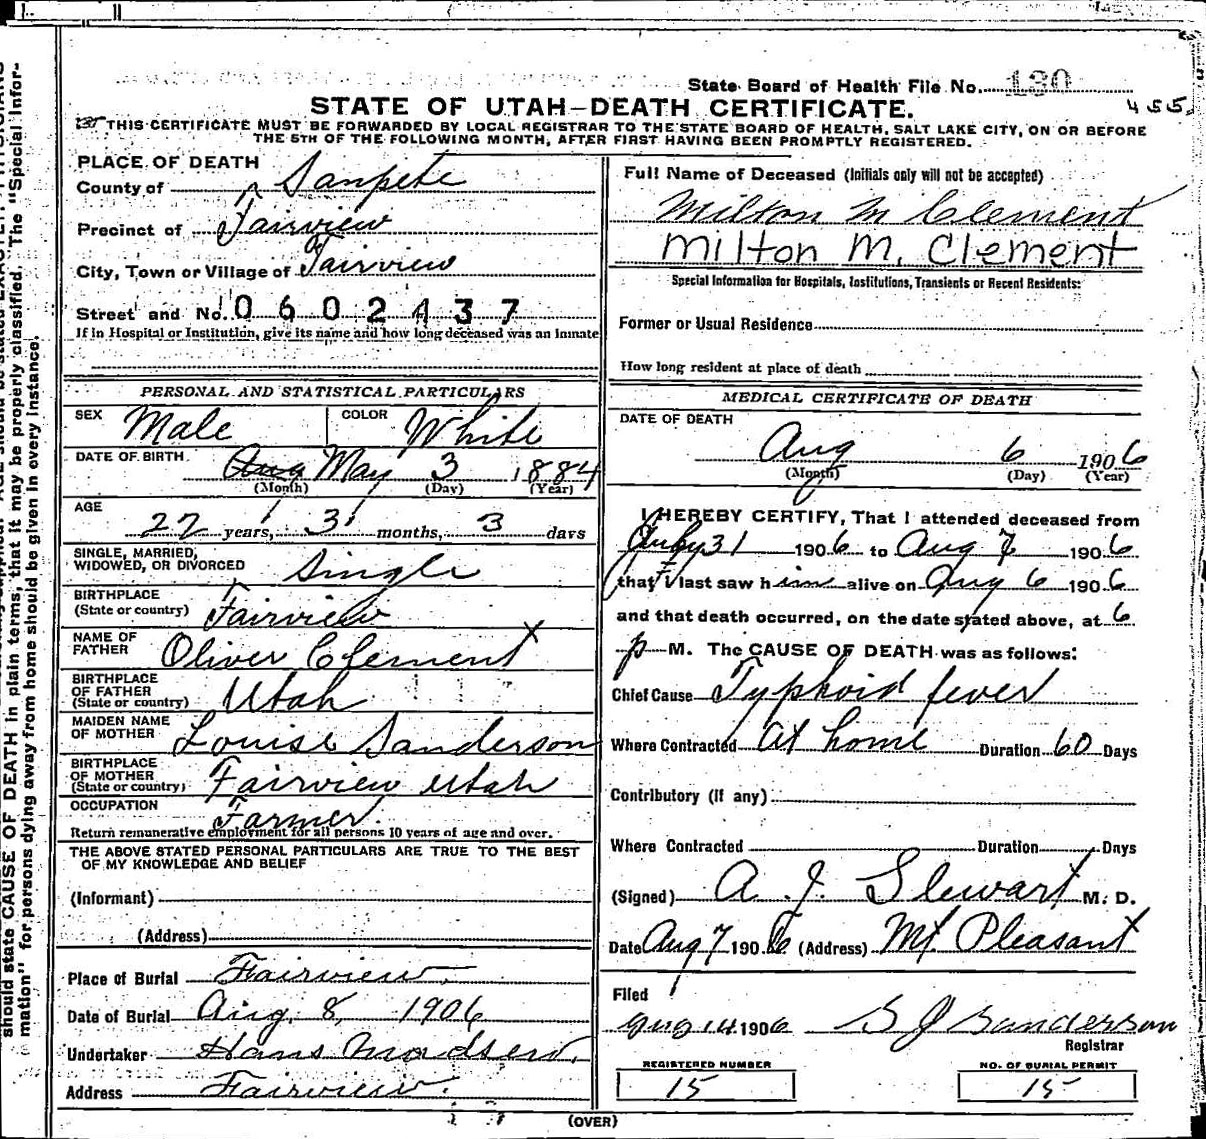 State Board of Health File No. 130
STATE OF UTAH—DEATH CERTIFICATE.
455
THIS CERTIFICATE MUST BE FORWARDED BY LOCAL REGISTRAR TO THE STATE BOARD OF HEALTH, SALT LAKE CITY, ON OR BEFORE
THE 5TH OF THE FOLLOWING MONTH, AFTER FIRST HAVING BEEN PROMPTLY REGISTERED.
PLACE OF DEATH
County of Sanpete
Precinct of Fairview
City, Town or Village of Fairview
Street and No. 0602437
If in Hospital or Institution, give its name and how long deceased was an inmate
PERSONAL AND STATISTICAL PARTICULARS
SEX Male COLOR White
DATE OF BIRTH Aug May 3 1884
(Month) (Day) (Year)
AGE
22 years, 3 months, 3 days
SINGLE, MARRIED,
WIDOWED, OR DIVORCED Single
BIRTHPLACE
(State or country) Fairview
NAME OF
FATHER Oliver Clement X
BIRTHPLACE
OF FATHER
(State or country) Utah
MAIDEN NAME
OF MOTHER Louise Sanderson
BIRTHPLACE
OF MOTHER
(State or country) Fairview Utah
OCCUPATION Farmer.
Return remunerative employment for all persons 10 years of age and over.
THE ABOVE STATED PERSONAL PARTICULARS ARE TRUE TO THE BEST
OF MY KNOWLEDGE AND BELIEF
(Informant)
(Address)
Place of Burial Fairview.
Date of Burial Aug. 8, 1906
Undertaker Hans Madsen.
Address Fairview.
Full Name of Deceased (Initials only will not be accepted)
Milton M Clement
Milton M. Clement
Special Information for Hospitals, Institutions, Transients or Recent Residents:
Former or Usual Residence
How long resident at place of death
MEDICAL CERTIFICATE OF DEATH
DATE OF DEATH
Aug 6 1906
(Month) (Day) (Year)
I HEREBY CERTIFY, That I attended deceased from
July 31 1906 to Aug 7 1906
that I last saw him alive on Aug 6 1906
and that death occurred, on the date stated above, at 6
p M. The CAUSE OF DEATH was as follows:
Chief Cause Typhoid fever
Where Contracted At home Duration 60 Days
Contributory (if any)
Where Contracted Duration Days
(Signed) A. J. Stewart M. D.
Date Aug 7 1906 (Address) Mt Pleasant
Filed
Aug 14 1906 S J Sanderson
Registrar
REGISTERED NUMBER
15
NO. OF BURIAL PERMIT
15
(OVER)
should state CAUSE OF DEATH in plain terms, that it may be properly classified. The "Special Infor-
mation" for persons dying away from home should be given in every instance.